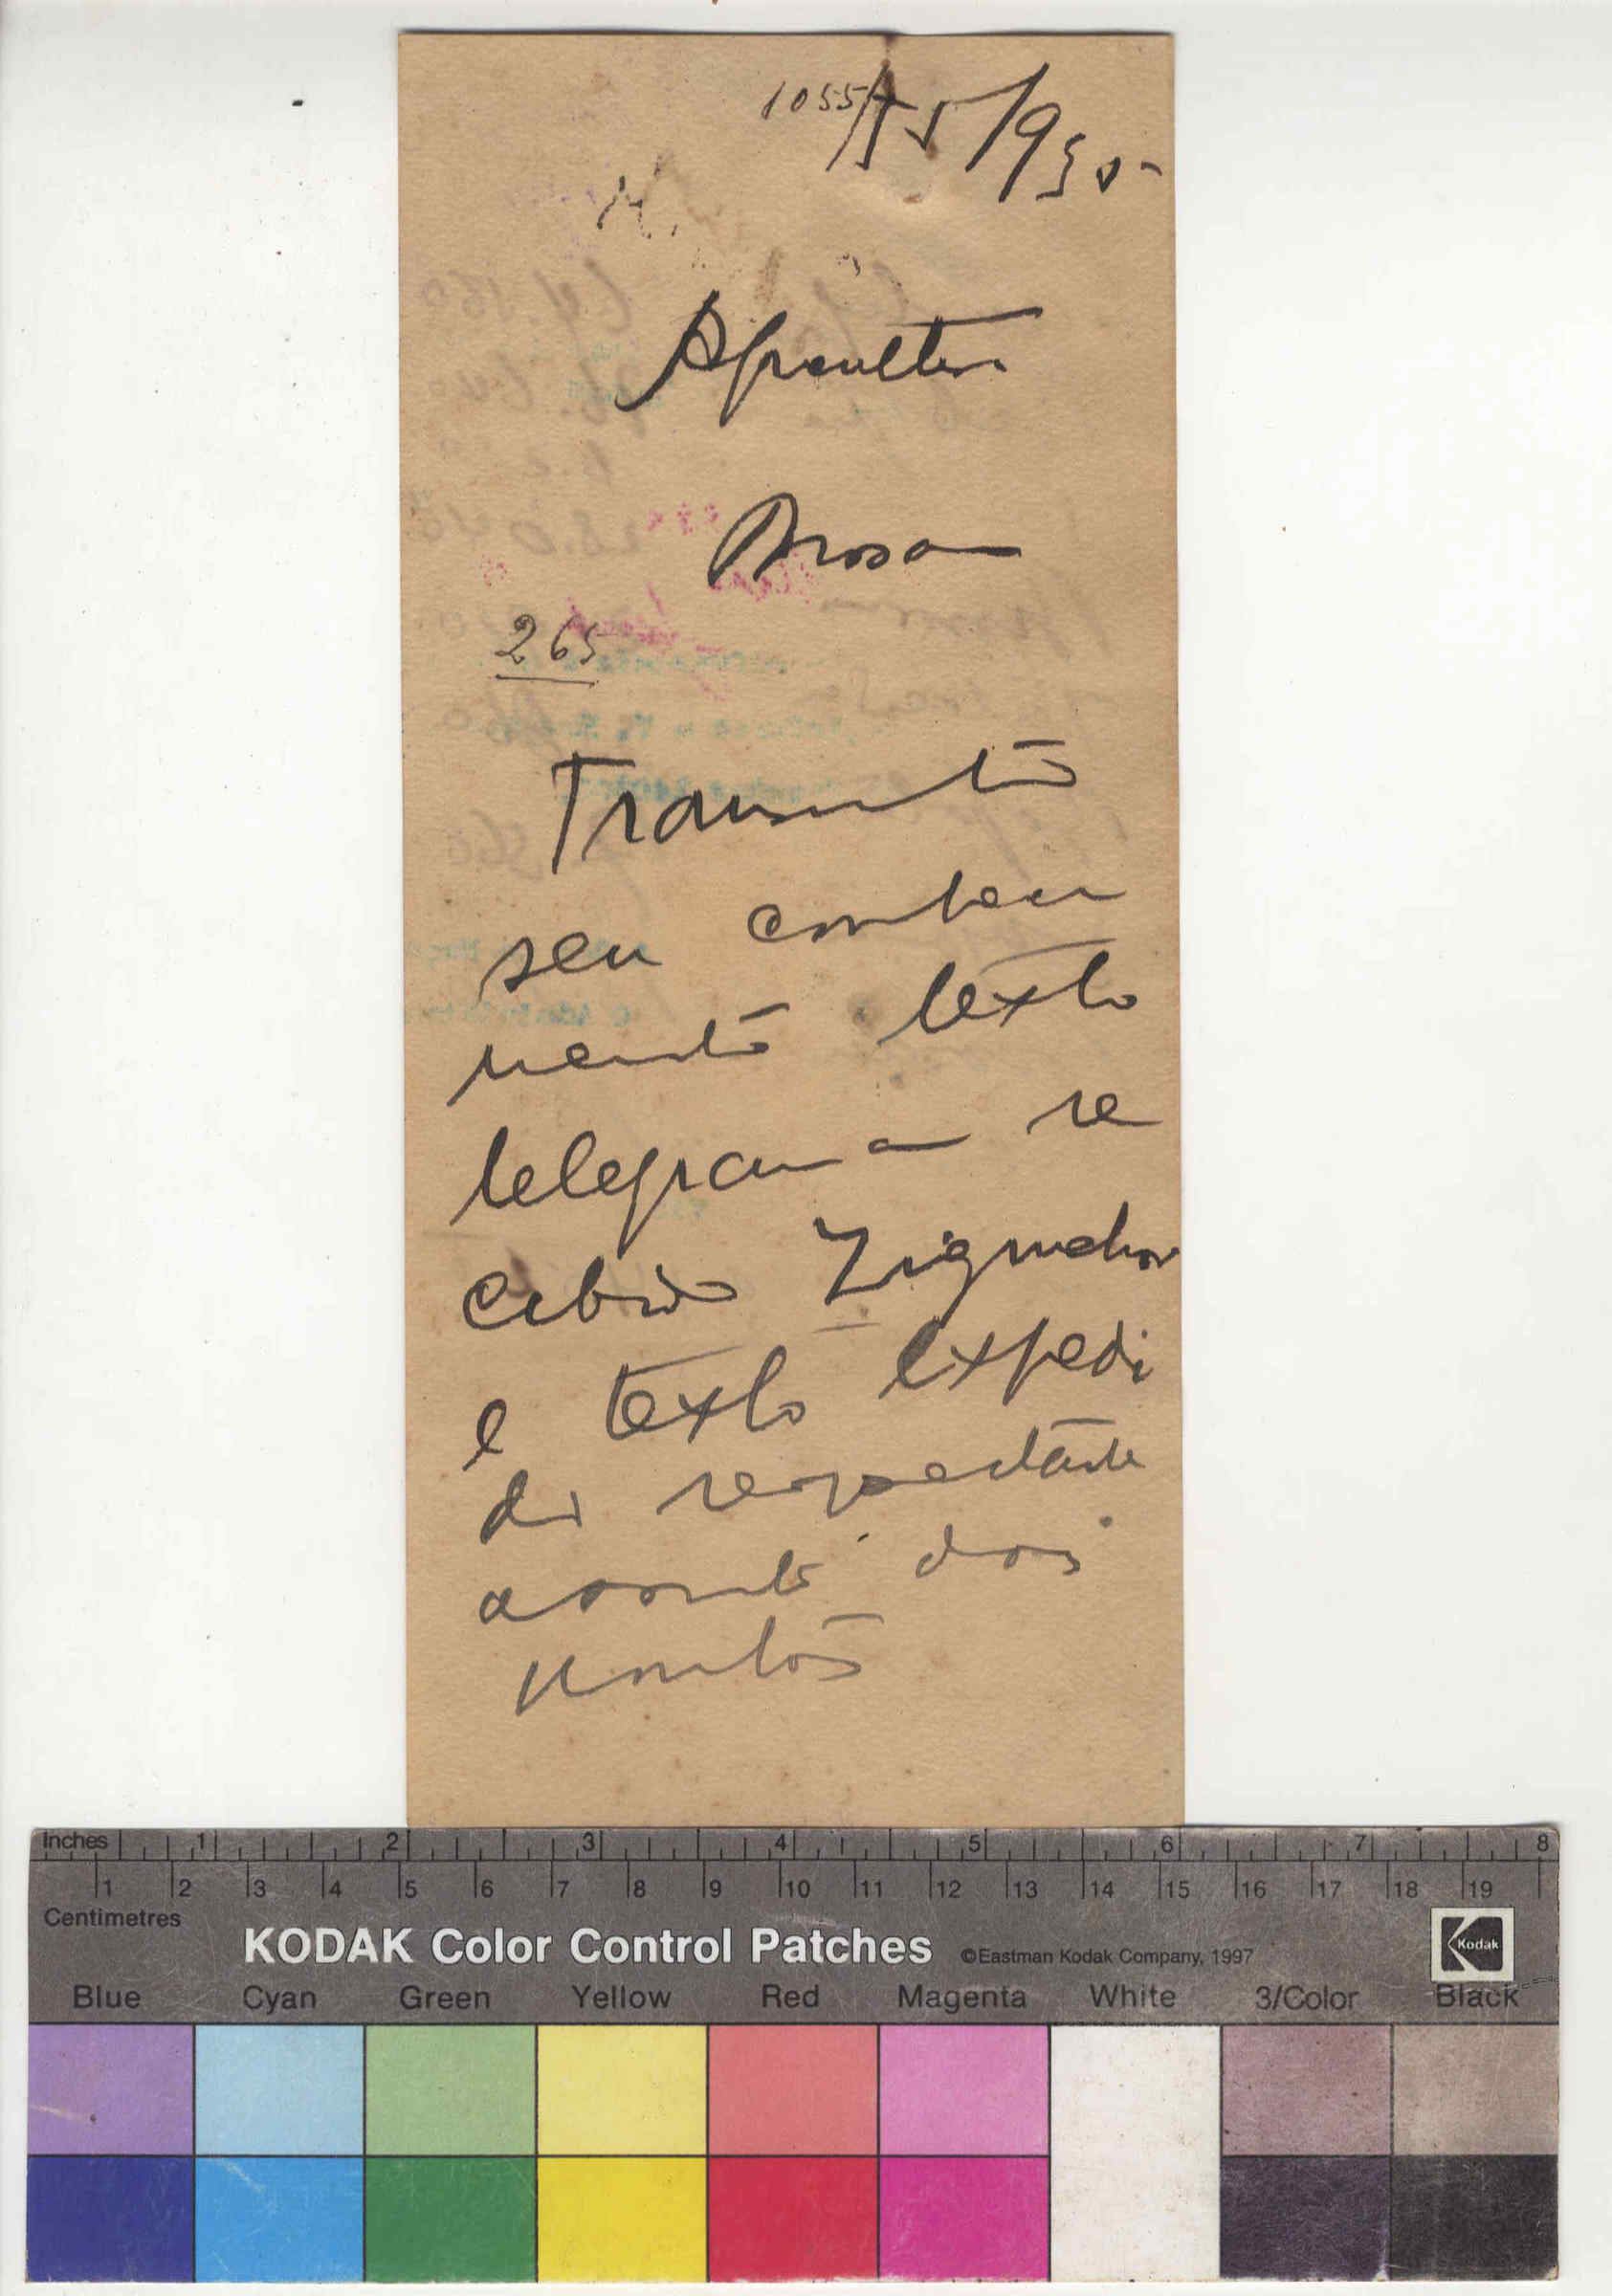 1055
15/930-
M.
Agricultura
265
Transmito
seu conheci
mento texto
telegrama re
cebido Ziguichor
e texto expedi
do respeitante
assunto dois
pontos
Inches 1 2 3 4 5 6 7 8
1 2 3 4 5 6 7 8 9 10 11 12 13 14 15 16 17 18 19
Centimetres
KODAK Color Control Patches ©Eastman Kodak Company, 1997 Kodak
Blue Cyan Green Yellow Red Magenta White 3/Color Black